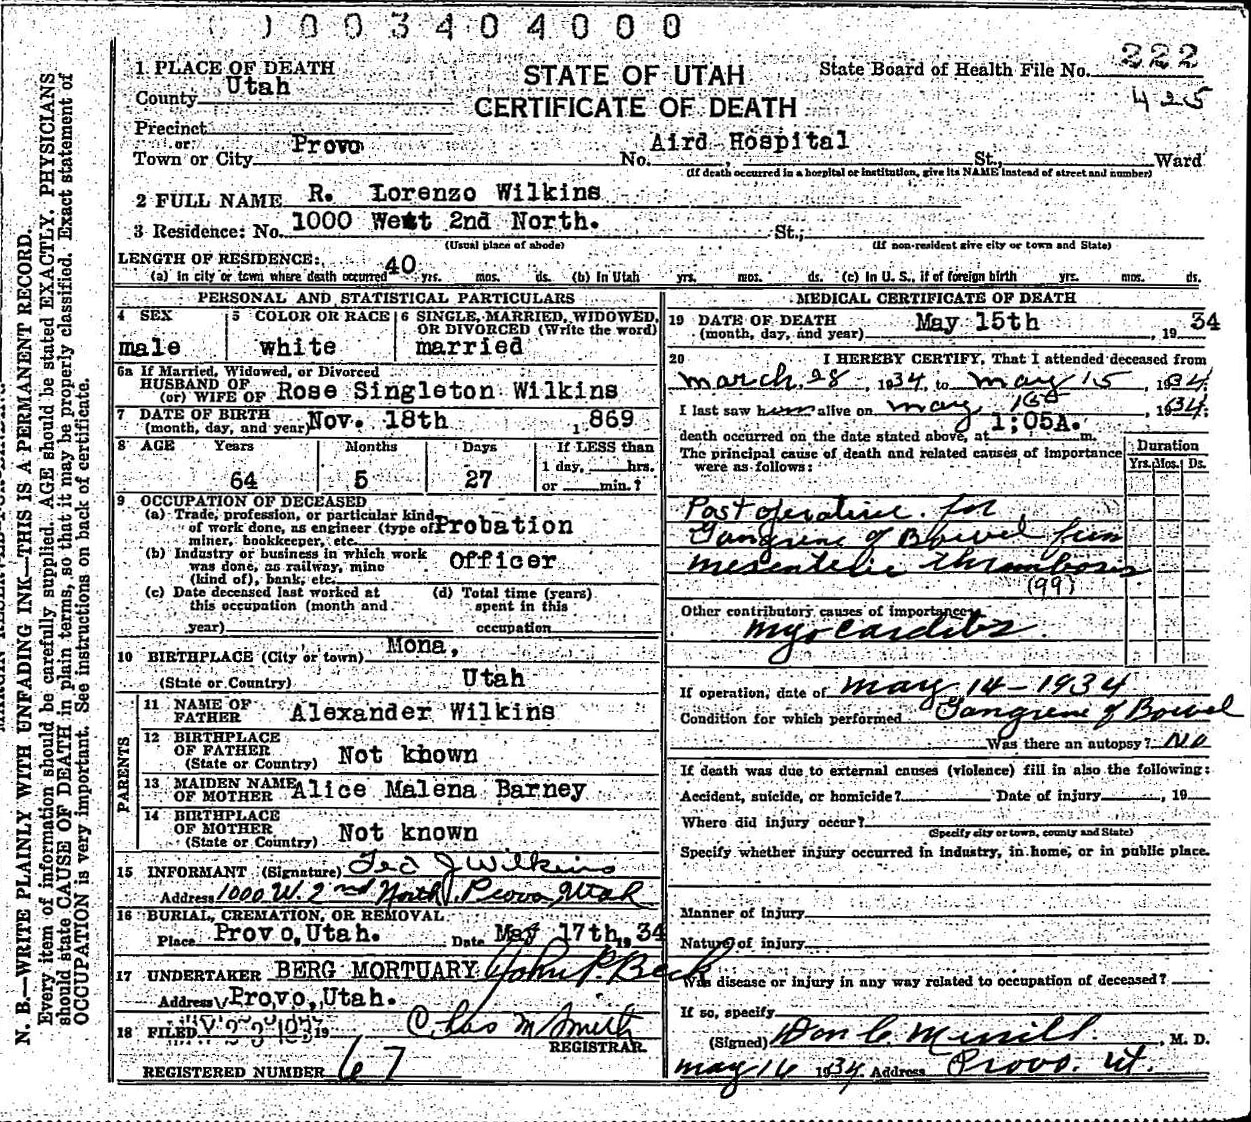 0 0 3 4 0 4 0 0 0
STATE OF UTAH
CERTIFICATE OF DEATH
State Board of Health File No. 222
425
1 PLACE OF DEATH
County Utah
Precinct
or
Town or City Provo No. Aird Hospital St., Ward
(If death occurred in a hospital or institution, give its NAME instead of street and number)
2 FULL NAME R. Lorenzo Wilkins
3 Residence: No. 1000 West 2nd North. St.,
(Usual place of abode) (If non-resident give city or town and State)
LENGTH OF RESIDENCE:
(a) In city or town where death occurred 40 yrs. mos. ds. (b) In Utah yrs. mos. ds. (c) In U. S., if of foreign birth yrs. mos. ds.
PERSONAL AND STATISTICAL PARTICULARS
4 SEX
male
5 COLOR OR RACE
white
6 SINGLE, MARRIED, WIDOWED,
OR DIVORCED (Write the word)
married
6a If Married, Widowed, or Divorced
HUSBAND OF
(or) WIFE OF Rose Singleton Wilkins
7 DATE OF BIRTH
(month, day, and year) Nov. 18th 1869
8 AGE Years Months Days If LESS than
1 day, hrs.
64 5 27 or min.?
9 OCCUPATION OF DECEASED
(a) Trade, profession, or particular kind
of work done, as engineer (type of Probation
miner, bookkeeper, etc.
(b) Industry or business in which work
was done, as railway, mine Officer
(kind of), bank, etc.
(c) Date deceased last worked at
this occupation (month and
year)
(d) Total time (years)
spent in this
occupation
10 BIRTHPLACE (City or town) Mona,
(State or Country) Utah
PARENTS
11 NAME OF
FATHER Alexander Wilkins
12 BIRTHPLACE
OF FATHER Not known
(State or Country)
13 MAIDEN NAME
OF MOTHER Alice Malena Barney
14 BIRTHPLACE
OF MOTHER Not known
(State or Country)
15 INFORMANT (Signature) Ted J Wilkins
Address 1000 W. 2nd North. Provo, Utah
16 BURIAL, CREMATION, OR REMOVAL
Place Provo, Utah. Date May 17th, 1934
17 UNDERTAKER BERG MORTUARY John P. Beck
Address Provo, Utah.
18 FILED 19 Chas M Smith
REGISTRAR.
REGISTERED NUMBER 67
MEDICAL CERTIFICATE OF DEATH
19 DATE OF DEATH
(month, day, and year) May 15th, 1934
20 I HEREBY CERTIFY, That I attended deceased from
march 28, 1934, to may 15, 1934.
I last saw him alive on may 15th, 1934.
death occurred on the date stated above, at 1:05A. m.
The principal cause of death and related causes of importance
were as follows:
Duration
Yrs. Mos. Ds.
Post operative for
Gangrene of Bowel from
mesenteric Thrombosis
(99)
Other contributory causes of importance:
myocarditis
If operation, date of may 14-1934
Condition for which performed Gangrene of Bowel
Was there an autopsy? No
If death was due to external causes (violence) fill in also the following:
Accident, suicide, or homicide? Date of injury, 19
Where did injury occur?
(Specify city or town, county and State)
Specify whether injury occurred in industry, in home, or in public place.
Manner of Injury
Nature of injury
Was disease or injury in any way related to occupation of deceased?
If so, specify
(Signed) Don C. Merrill, M. D.
may 16 1934. Address Provo. Ut.
N. B.—WRITE PLAINLY WITH UNFADING INK—THIS IS A PERMANENT RECORD.
Every item of information should be carefully supplied. AGE should be stated EXACTLY. PHYSICIANS
should state CAUSE OF DEATH in plain terms, so that it may be properly classified. Exact statement of
OCCUPATION is very important. See instructions on back of certificate.